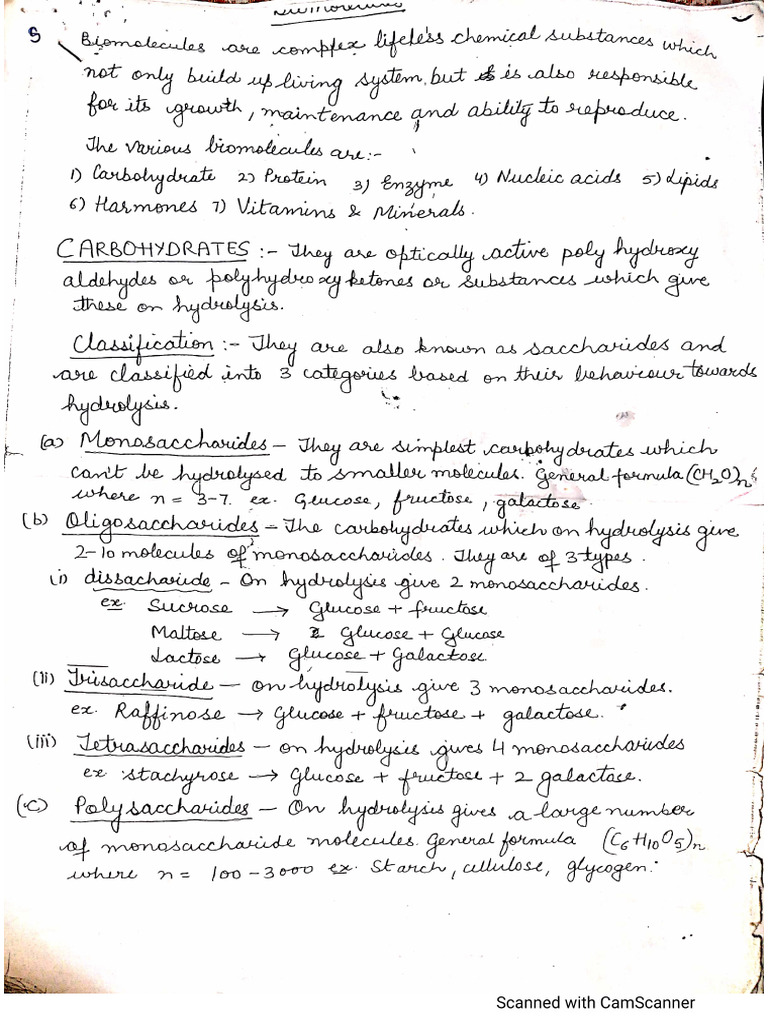 Biomolecules
5 Biomolecules are complex lifeless chemical substances which
not only build up living system but is also responsible
for its growth, maintenance and ability to reproduce.
The various biomolecules are:-
1) Carbohydrate 2) Protein 3) Enzyme 4) Nucleic acids 5) Lipids
6) Harmones 7) Vitamins & Minerals.
CARBOHYDRATES :- They are optically active poly hydroxy
aldehydes or polyhydroxy ketones or substances which give
these on hydrolysis.
Classification :- They are also known as saccharides and
are classified into 3 categories based on their behaviour towards
hydrolysis.
(a) Monosaccharides - They are simplest carbohydrates which
can't be hydrolysed to smaller molecules. General formula (CH₂O)n
where n = 3-7. ex. Glucose, fructose, galactose.
(b) Oligosaccharides - The carbohydrates which on hydrolysis give
2-10 molecules of monosaccharides. They are of 3 types.
(i) dissacharide - On hydrolysis give 2 monosaccharides.
ex. Sucrose → Glucose + fructose
Maltose → Glucose + Glucose
Lactose → Glucose + Galactose.
(ii) Trisaccharide - on hydrolysis give 3 monosaccharides.
ex. Raffinose → Glucose + fructose + galactose.
(iii) Tetrasaccharides - on hydrolysis gives 4 monosaccharides
ex stachyrose → Glucose + fructose + 2 galactose.
(c) Polysaccharides - On hydrolysis gives a large number
of monosaccharide molecules. General formula (C₆H₁₀O₅)n
where n = 100-3000 ex. Starch, cellulose, glycogen.
Scanned with CamScanner